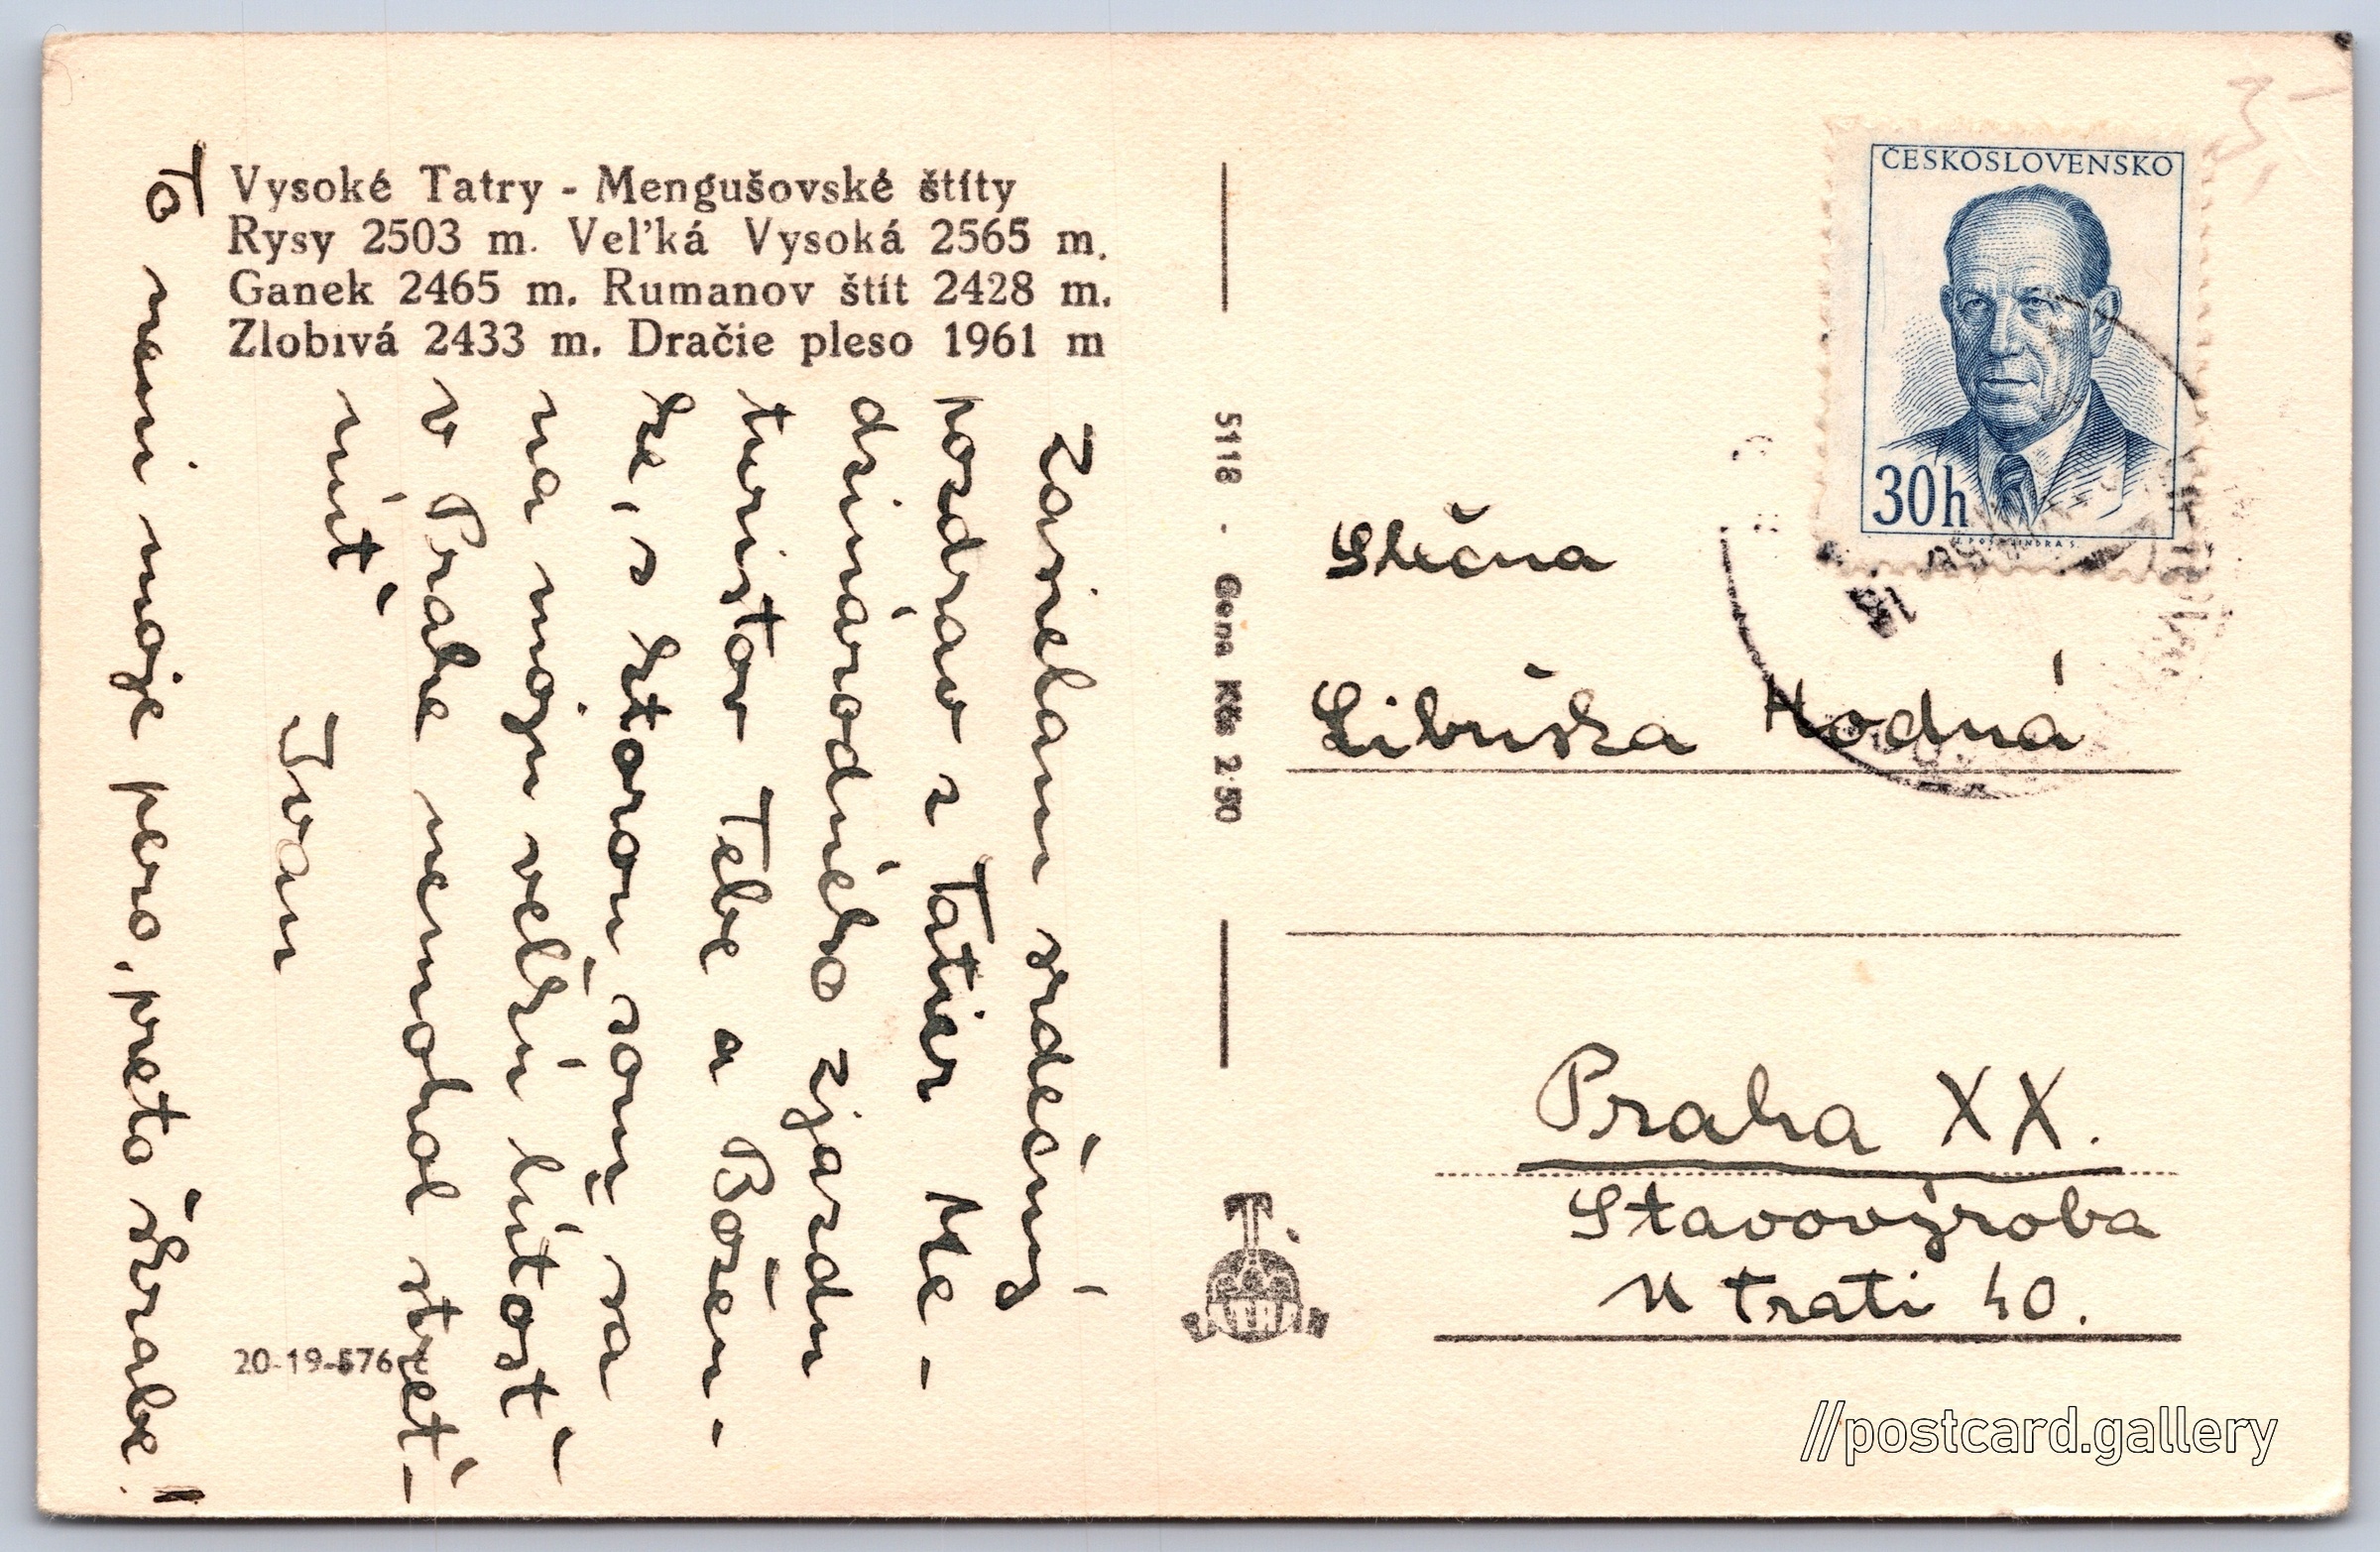 Vysoké Tatry - Mengušovské štíty
Rysy 2503 m. Veľ'ká Vysoká 2565 m.
Ganek 2465 m. Rumanov štít 2428 m.
Zlobivá 2433 m. Dračie pleso 1961 m
Zasielam srdečný
pozdrav z Tatier Me-
dzinárodného zjazdu
turistov Tebe a Božen-
ke, s ktorou som sa
na moju veľkú ľútosť
v Prahe nemohol stret-
núť.
Ivan
To neni moje pero, preto škrabe!
20-19-576
5118 · Cena Kčs 2·50
TATRAN
ČESKOSLOVENSKO
30h
Slečna
Libuška Hodná
Praha XX.
Stavovýroba
U trati 40.
//postcard.gallery